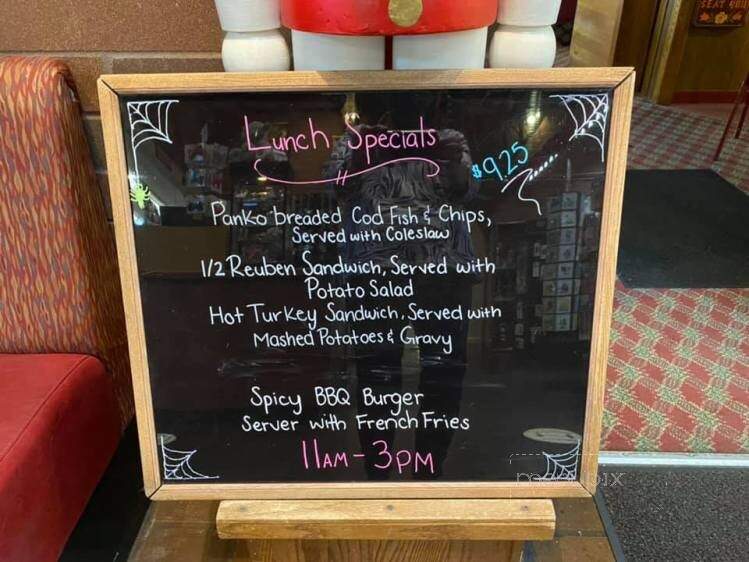 SEAT YOU
Lunch Specials
$9.25
Panko breaded Cod Fish & Chips,
Served with Coleslaw
1/2 Reuben Sandwich, Served with
Potato Salad
Hot Turkey Sandwich, Served with
Mashed Potatoes & Gravy
Spicy BBQ Burger
Server with French Fries
11AM - 3PM